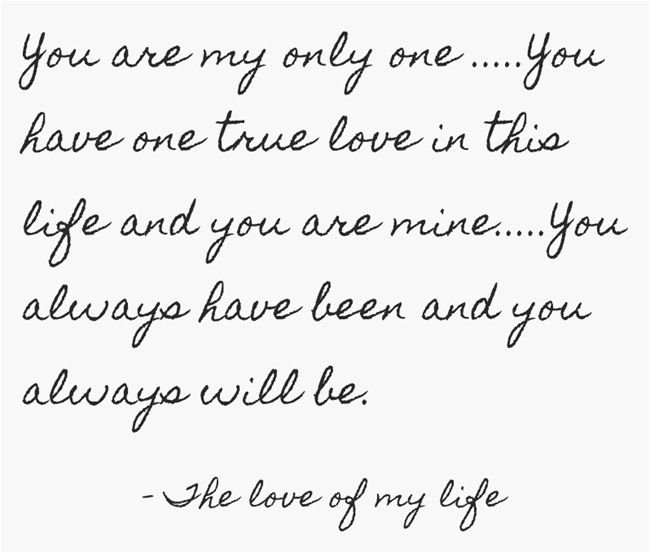 You are my only one .....You
have one true love in this
life and you are mine.....You
always have been and you
always will be.
- The love of my life